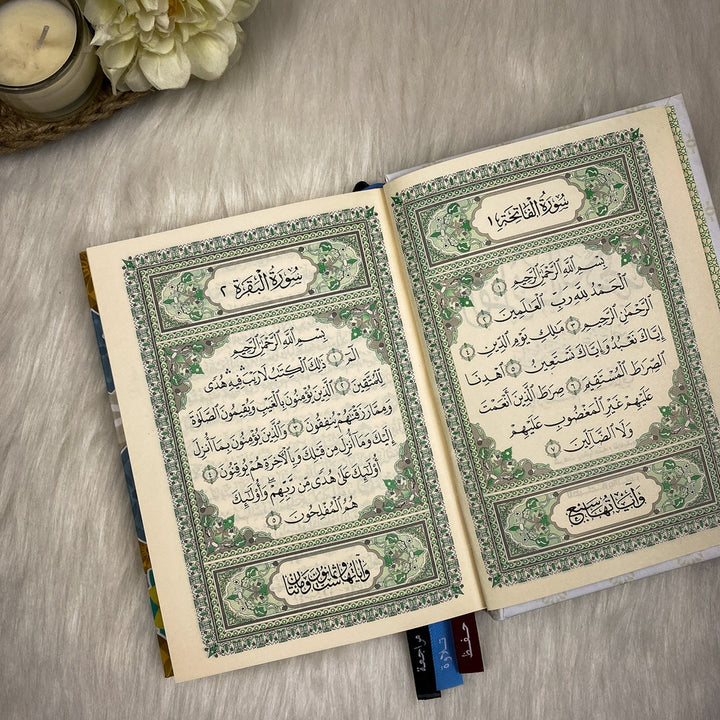 سُورَةُ الْفَاتِحَةِ ١
بِسْمِ ٱللَّهِ ٱلرَّحْمَٰنِ ٱلرَّحِيمِ ١
ٱلْحَمْدُ لِلَّهِ رَبِّ ٱلْعَٰلَمِينَ ٢
ٱلرَّحْمَٰنِ ٱلرَّحِيمِ ٣ مَٰلِكِ يَوْمِ ٱلدِّينِ ٤
إِيَّاكَ نَعْبُدُ وَإِيَّاكَ نَسْتَعِينُ ٥ ٱهْدِنَا
ٱلصِّرَٰطَ ٱلْمُسْتَقِيمَ ٦ صِرَٰطَ ٱلَّذِينَ أَنْعَمْتَ
عَلَيْهِمْ غَيْرِ ٱلْمَغْضُوبِ عَلَيْهِمْ
وَلَا ٱلضَّآلِّينَ ٧
وَآيَاتُهَا سَبْعٌ
سُورَةُ الْبَقَرَةِ ٢
بِسْمِ ٱللَّهِ ٱلرَّحْمَٰنِ ٱلرَّحِيمِ
الٓمٓ ١ ذَٰلِكَ ٱلْكِتَٰبُ لَا رَيْبَ ۛ فِيهِ ۛ هُدًى
لِّلْمُتَّقِينَ ٢ ٱلَّذِينَ يُؤْمِنُونَ بِٱلْغَيْبِ وَيُقِيمُونَ ٱلصَّلَوٰةَ
وَمِمَّا رَزَقْنَٰهُمْ يُنفِقُونَ ٣ وَٱلَّذِينَ يُؤْمِنُونَ بِمَآ أُنزِلَ
إِلَيْكَ وَمَآ أُنزِلَ مِن قَبْلِكَ وَبِٱلْأَخِرَةِ هُمْ يُوقِنُونَ ٤
أُو۟لَٰٓئِكَ عَلَىٰ هُدًى مِّن رَّبِّهِمْ ۖ وَأُو۟لَٰٓئِكَ
هُمُ ٱلْمُفْلِحُونَ ٥
وَآيَاتُهَا سِتٌّ وَثَمَانُونَ وَمِائَتَانِ
مراجعة
تلاوة
حفظ